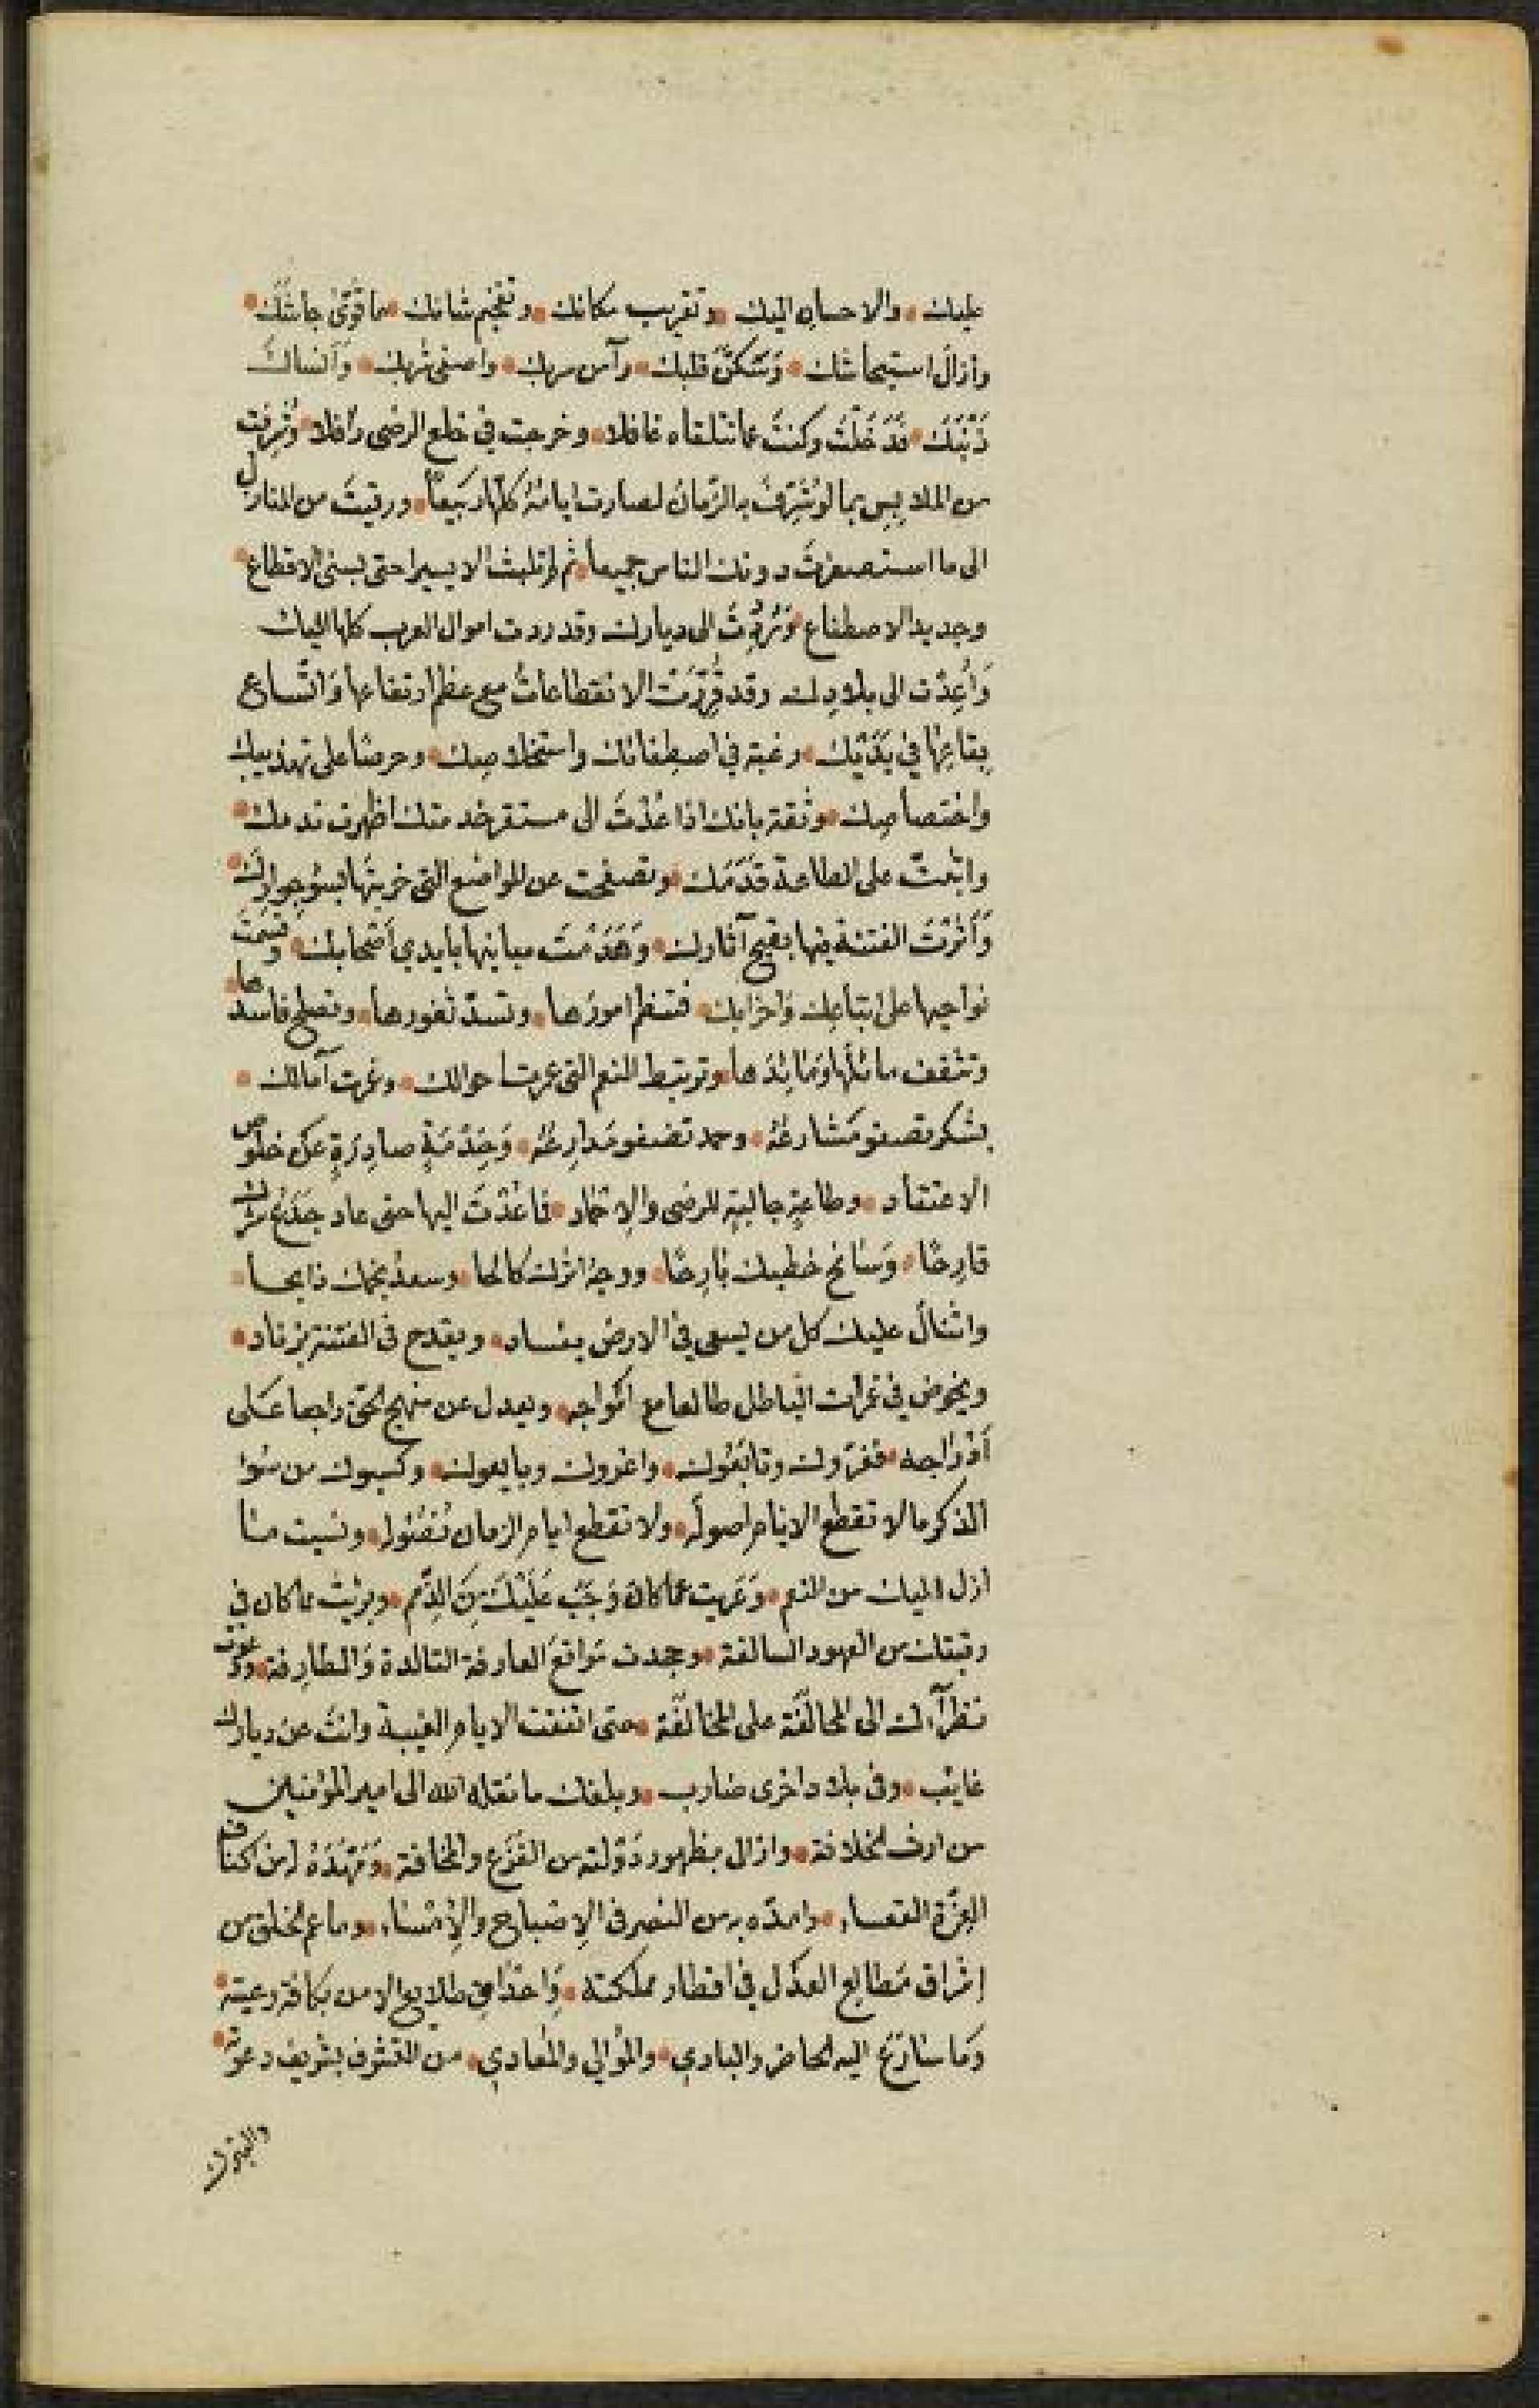 عليك والاحسان اليك وتقريب مكانك وتفخيم شانك ما قوّى جاشك
وازال استيحاشك وَسَكَنَّ قلبك وآمن سربك واصفى شربك وَانساك
ذَنْبَكَ فَدَخَلْتَ وكنتَ عما تتلقاه غافلا وخرجت في خلع الرضى رافلا وشُرِّفت
من الملابس بما لو تَشَرَّفَ به الزمان لصارت ايامُهُ كلها ربيعاً ورقيتَ من المنازل
الى ما استصغرتَ دونك الناس جميعاً ثم لم تلبث الا يسيرا حتى بسنى الاقطاع
وجديد الاصطناع وَرُدِدْتَ الى ديارك وقد ردت اموال العرب كلها اليك
وَاُعِدْت الى بلادِك وقد قُرِّرَت الانقطاعاتُ مع عظم ارتفاعها وَاتّساع
بِقاعِها في يَدَيْك رغبة في اصطفائك واستخلاصِك وحرصاً على تهذيبك
واختصاصِك وثقة بانك اذا عُدْتَ الى مستقر خدمتك اظهرت ندمك
واثبتّ على الطاعة قَدَمَك وتصفحت عن المواضع التي خربتَها بسوء جوارك
وَأَثَرْتَ الفتنة فيها بقبيح آثارك وَهَدَمْتَ مبانيها بايدي اَصْحابك وقسّمتَ
نواحيها على اتباعِك وَاحزابك فتنظم امورَها وتسدّ ثغورها وتصلح فاسدها
وتثقف مائلها وَمَائِدَها وترتبط النعم التي احوالك آمالك
بشكر تصفو مَشارعُهُ وحمد تضفو مَدارِعُهُ وَخِدْمَةٍ صادِرَةٍ عَن خلوص
الاعتقاد وطاعةٍ جالبةٍ للرضى والاحماد فما عُدْتَ اليها حتى عاد جَذَعُ شرك
قارِحًا وَسَانح خطبك بَارِحًا ووجهُ اثرك كالحا وسعدُ نجمك ذابحا
وانثالَ عليك كل من يسعى في الارض بفساد ويقدح في الفتنة بزناد
ويخوض في غمرات الباطل طالعا مع امواجه ويعدل عن منهج الحق راجعا عَلى
اَدْراجه فغرّوك وتابَعُوك واغروك وبايعوك وكسبوك من سُوء
الذكر ما لا تقطع الايام اصولَه ولا تقطع ايام الزمان ونسيت مَا
ازل اليك من النعم وَعَريت عما كان وَجَبَ عَلَيْكَ مِنَ الذِّمَم وبرئتَ مما كان في
رقبتك من العهود السالفة وجحدت مَواقعَ العارفة التالدة وَالطارِفة ودعوت
نظرآءك الى المحالَفة على المخالَفَة حتى اتفقت الايام الغيبة وانتَ عن ديارك
غايب وفى بلاد اخرى ضارب وبلغك ما نقله الله الى امير المؤمنين
من ارث الخلافة وازال بظهور دَوْلته من الفَزَع والمخافة وَمَهَّدَهُ من
العِزّة القعساء وامدّه به من النصر في الاِصْباح والاِمْسَاء وما عم الخلق من
اِشراق مَطالِع العَدْل في اقطار مملكته طلايع الامن بكافة رعيته
وَمَا سَارَعَ اليه الحاضر والبادي والمُوالي والمُعادي من التشرف بشريف دعوته
والتبرك